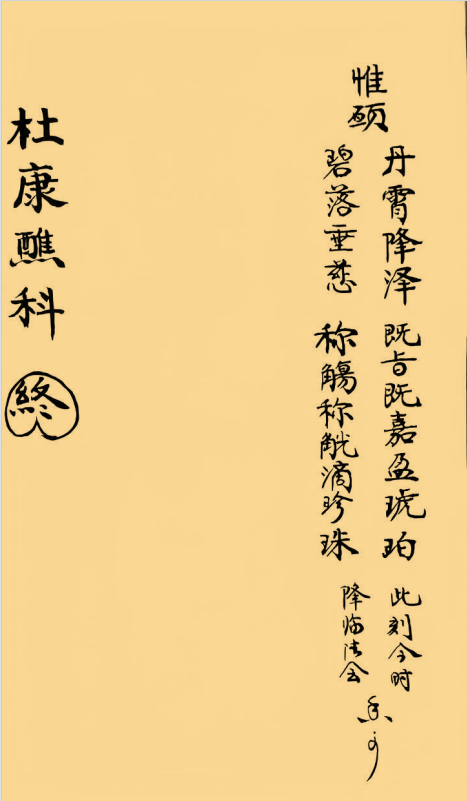 惟願
丹霄降泽 既旨既嘉盈琥珀 此刻今时
碧落垂慈 称觞称觥滴珍珠 降临法会
杜康醮科 終